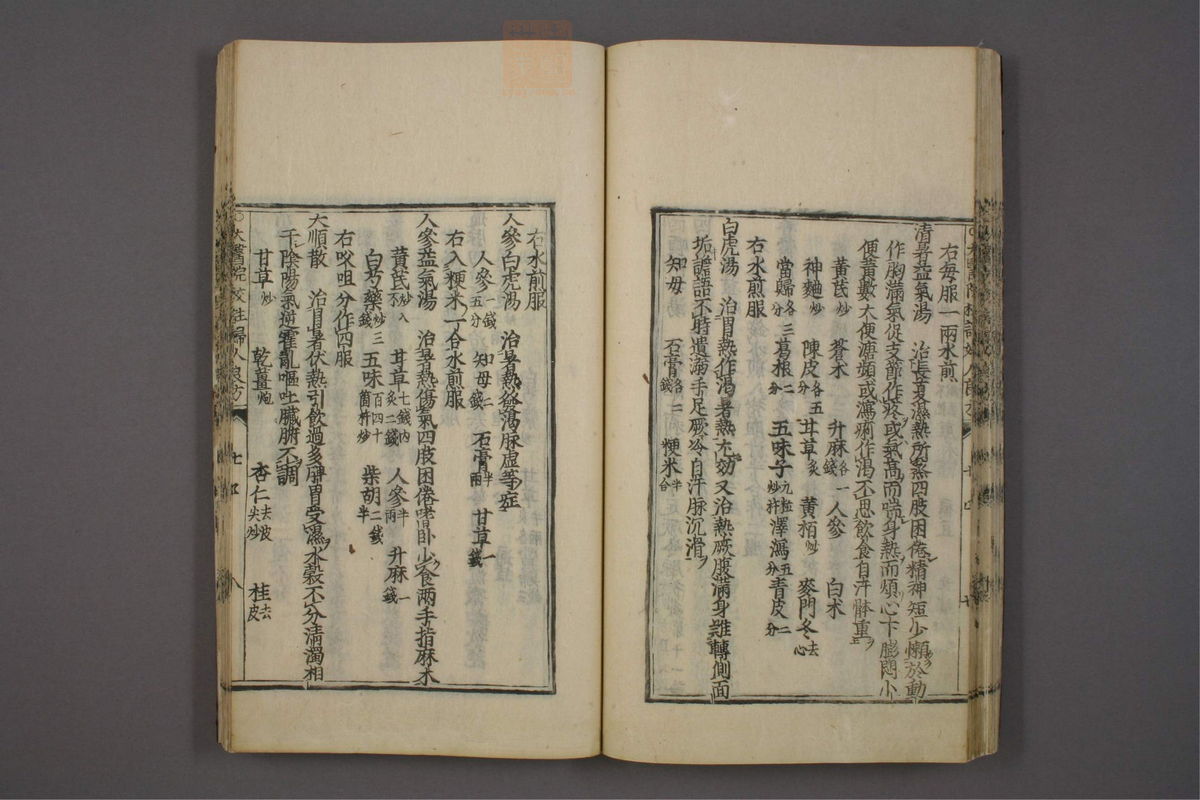 右每服一兩水煎
清暑益氣湯　治長夏濕熱所蒸四肢困倦精神短少懶於動
作胸滿氣促支節作疼或氣高而喘身熱而煩心下膨悶小
便黃數大便溏頻或瀉痢作渴不思飲食自汗體重
黃芪炒　蒼朮　升麻各一錢　人參　白朮
神麯炒　陳皮各五分　甘草炙　黃栢炒　麥門冬去心
當歸各三分　葛根二分　五味子九粒杵炒　澤瀉五分　青皮二分
右水煎服
白虎湯　治胃熱作渴暑熱尤効又治熱厥腹滿身難轉側面
垢譫語不時遺溺手足厥冷自汗脉沉滑
知母　石膏各二錢　粳米半合
右水煎服
人參白虎湯　治暑熱發渴脉虛等症
人參一錢五分　知母二錢　石膏半兩　甘草一錢
右入粳米一合水煎服
人參益氣湯　治暑熱傷氣四肢困倦嗜臥少食兩手指麻木
黃芪炒八　甘草七錢内炙二錢　人參半兩　升麻一錢
白芍藥炒三錢　五味百四十箇杵炒　柴胡二錢半
右㕮咀分作四服
大順散　治冒暑伏熱引飲過多脾胃受濕水穀不分清濁相
干陰陽氣逆霍亂嘔吐臟腑不調
甘草炒　乾薑炮　杏仁去皮尖炒　桂去皮
太醫院校註婦人良方